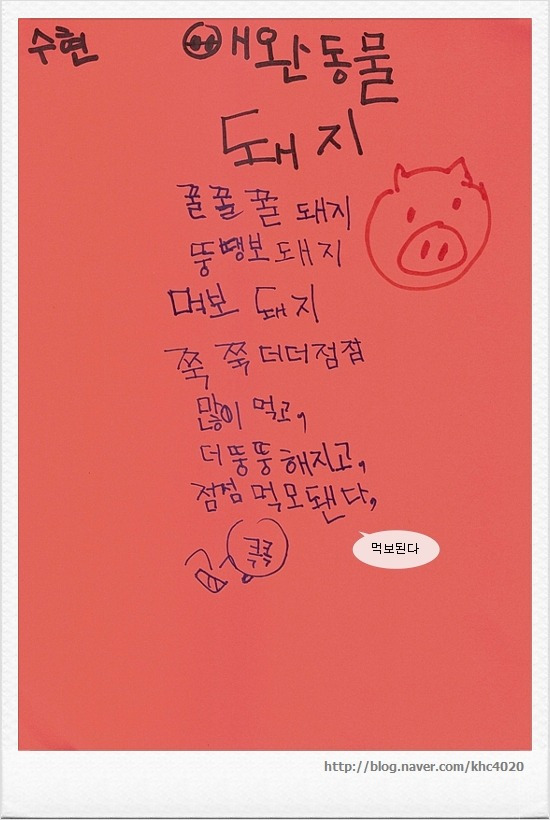 수현
애완동물
돼지
꿀꿀꿀 돼지
뚱땡보 돼지
먹보 돼지
쭉 쭉 더더점점
많이 먹고,
더뚱뚱해지고,
점점 먹모됀다,
쿡쿡
먹보된다
http://blog.naver.com/khc4020